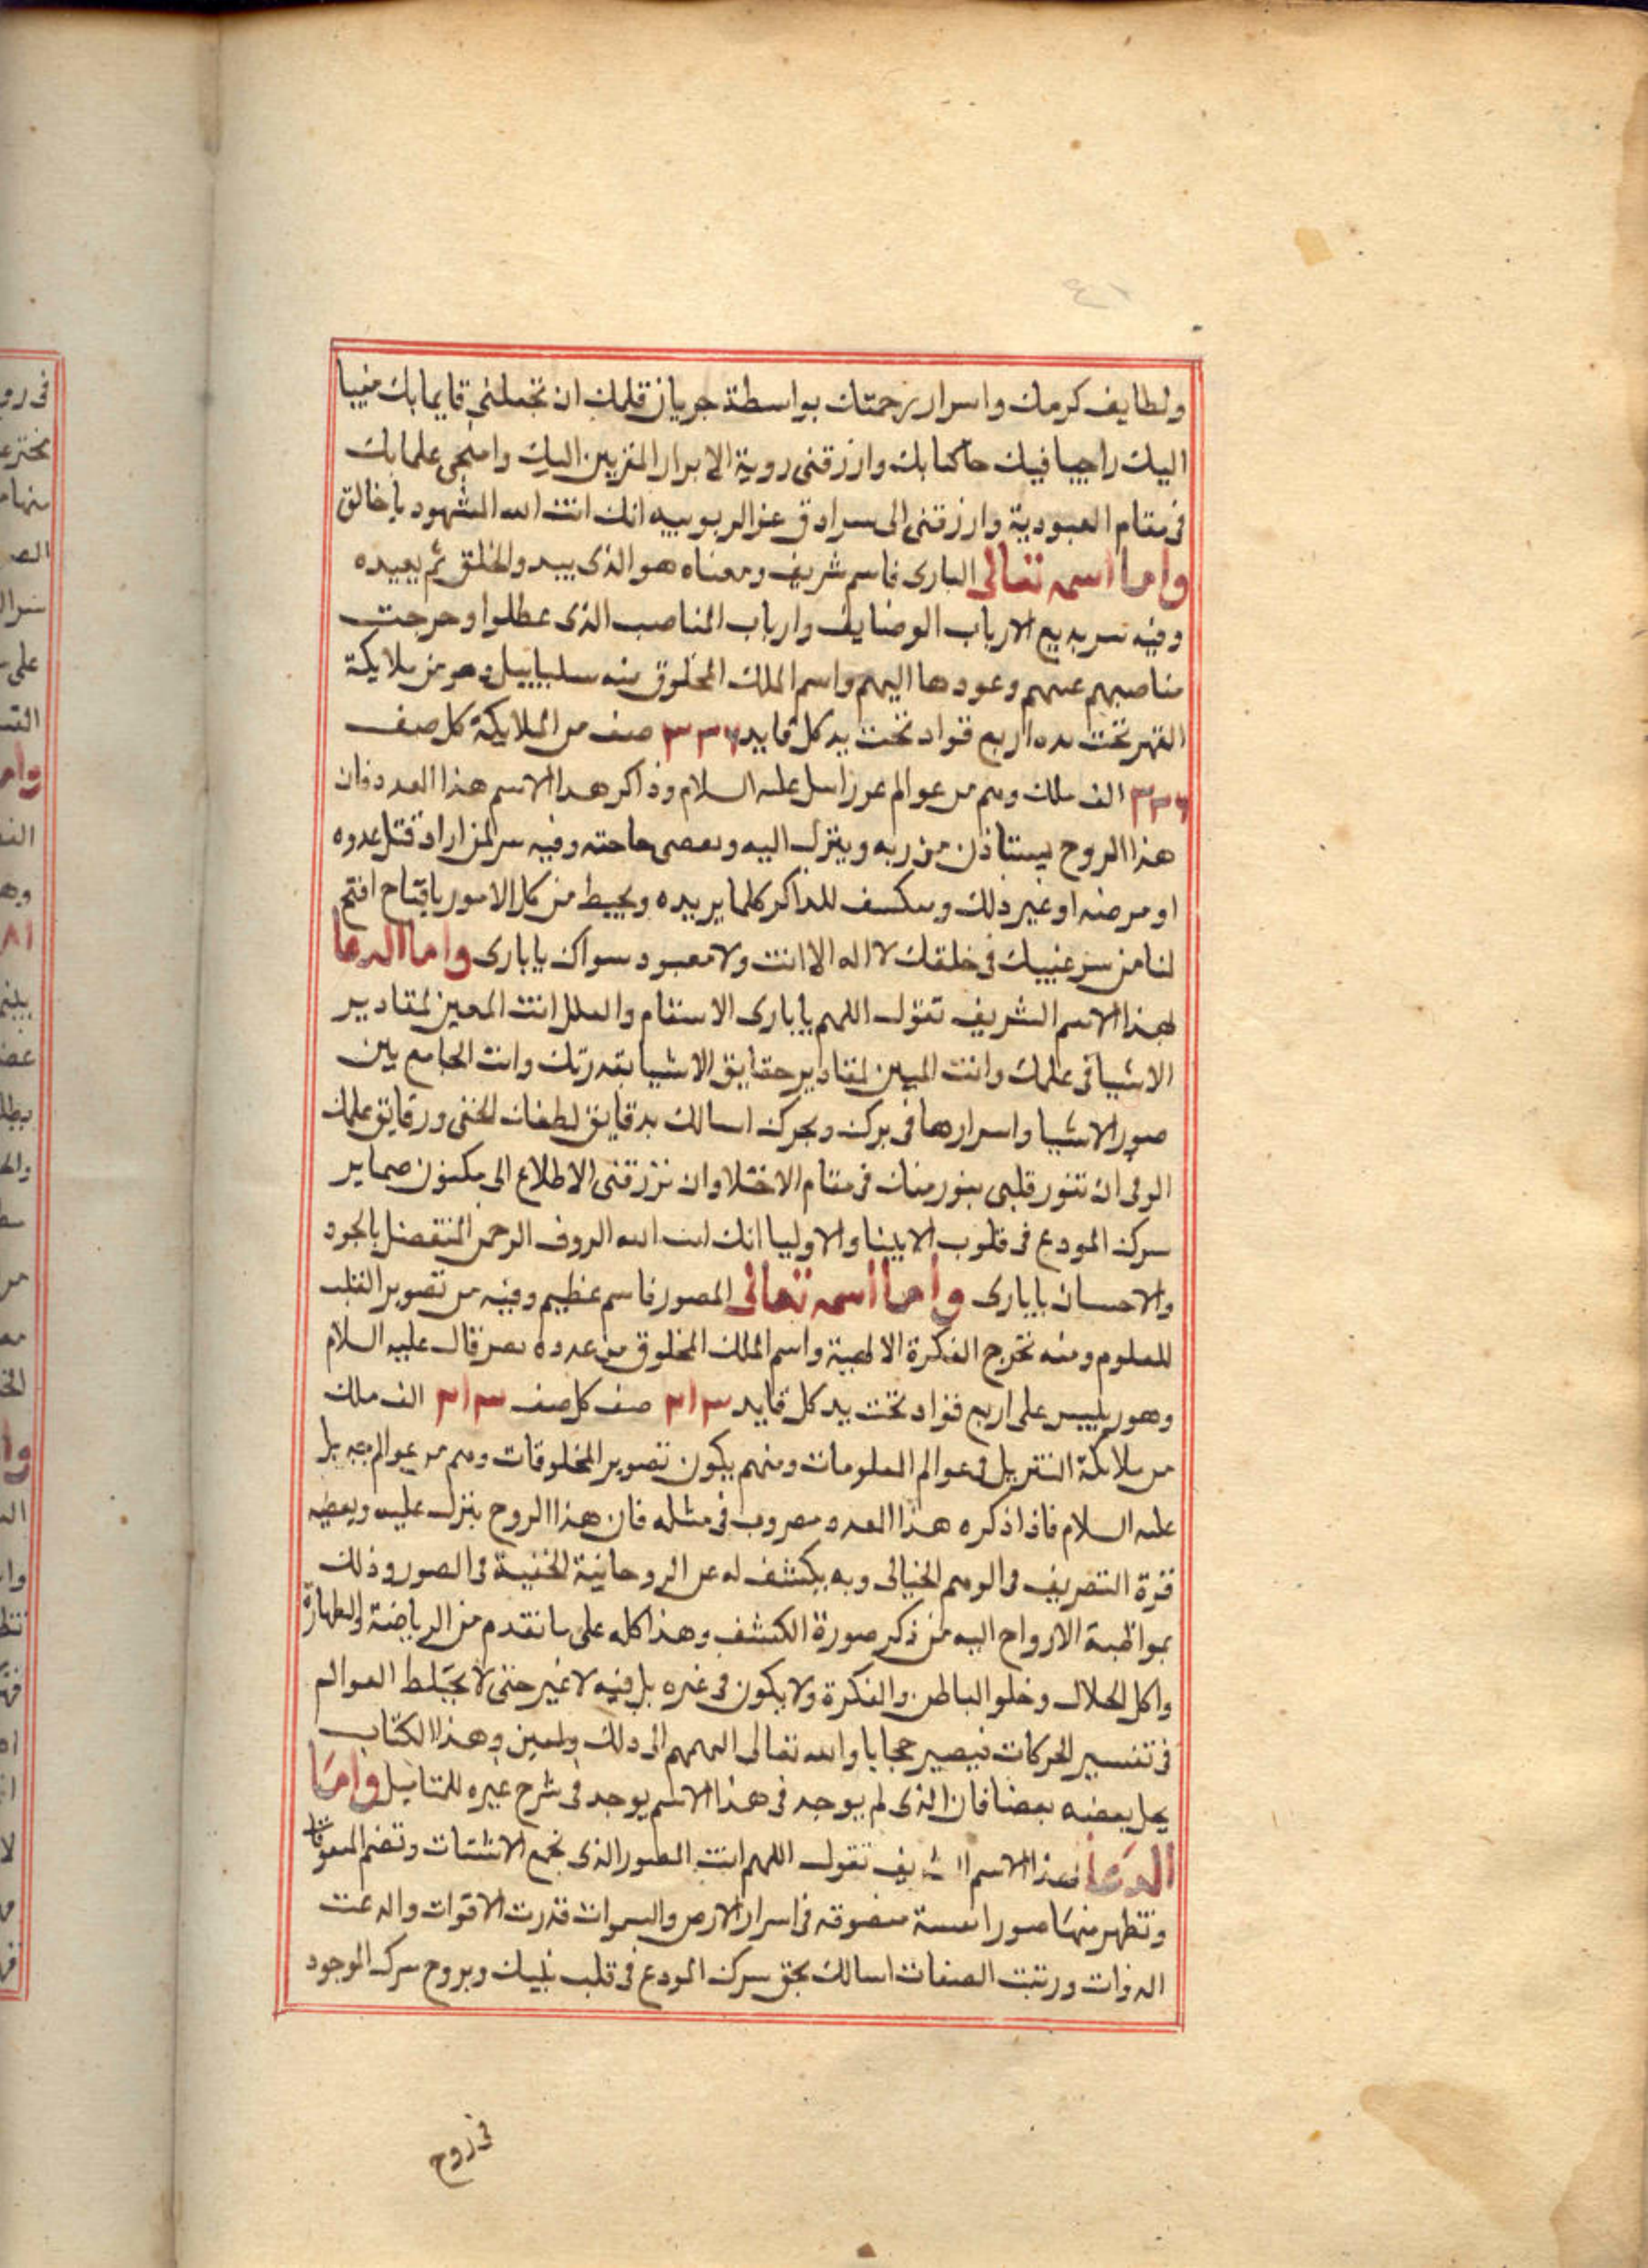 ولطايف كرمك واسرار رحمتك بواسطة جريان قلمك ان تجعلنى قايما بك منيبا
اليك راجيا فيك حاكما بك وارزقنى روية الابرار المقربين اليك وامنحنى علما بك
فى مقام العبودية وارزقنى الى سرادق عز الربوبيه انك انت الله المشهود ياخالق
واما اسمه تعالى البارى فاسم شريف ومعناه هو الذى يبيد والخلق ثم يعيده
وفيه سر بديع الارباب الوضايف وارباب المناصب الذى عطلوا وخرجت
مناصبهم عنهم وعودها اليهم واسم الملك المخلوق منه سلبياييل وهو من ملايكة
القهر تحت يده اربع قواد تحت يد كل قايد ٣٣٦ صف من الملايكة كل صف
٣٣٦ الف ملك وهم من عوالم عزراييل عليه السلام وذاكر هذا الاسم هذا العدد فان
هذا الروح يستاذن من ربه وينزل اليه ويقضى حاجته وفيه سر لمن اراد قتل عدوه
او مرضه او غير ذلك وينكشف للذاكر كلما يريده ويحيط من كل الامور يافتاح افتح
لنا من سر غيبك فى خلقك لا اله الا انت ولا معبود سواك يابارى واما الدعا
لهذا الاسم الشريف تقول اللهم يابارى الاسقام والعلل انت المعين لمقادير
الاشيا فى علمك وانت المبين لمقادير حقايق الاشيا بقدرتك وانت الجامع بين
صور الاشيا واسرارها فى برك وبحرك اسالك بدقايق لطفك الخفى ورقايق علمك
الوفى ان تنور قلبى بنور منك فى مقام الاختلا وان ترزقنى الاطلاع الى مكنون ضماير
سرك المودع فى قلوب الانبيا والاوليا انك انت الله الروف الرحمن المتفضل بالجود
والاحسان يابارى واما اسمه تعالى المصور فاسم عظيم وفيه من تصوير القلب
للعلوم ومنه تخرج الفكرة الالهية واسم الملك المخلوق من عدده نصرقال عليه السلام
وهو رييس على اربع قواد تحت يد كل قايد صف كل صف الف ملك
من ملائكة التنزيل فى عوالم العلومات ومنهم يكون تصوير المخلوقات وهم من عوالم جبريل
عليه السلام فاذا ذكره هذا العدد مضروب فى مثله فان هذا الروح ينزل عليه ويعطيه
قوة التصريف فى الوهم الخيالى وبه يكشف له عن الروحانية الخفية فى الصور وذلك
بمواظبة الارواح اليه من ذكر صورة الكشف وهذا كله على ما تقدم من الرياضة والطهارة
واكل الحلال وخلو الباطن والفكرة ولا يكون فى غيره بل فيه لا غير حتى لا يختلط العوالم
فى تفسير الحركات فيصير حجابا والله تعالى الملهم الى ذلك والمعين وهذا الكتاب
يحل بعضه بعضا فان الذى لم يوجد فى هذا الاسم يوجد فى شرح غيره للمتاميل واما
الدعا لهذا الاسم الشريف تقول اللهم انت المصور الذى تجمع الاشتات وتضم المتفرقات
وتظهر منها صورا فى اسرار الارض والسموات قدرت الاقوات
الذوات ورتبت الصفات اسالك بحق سرك المودع فى قلب نبيك وبروح سرك الموجود
فى روح